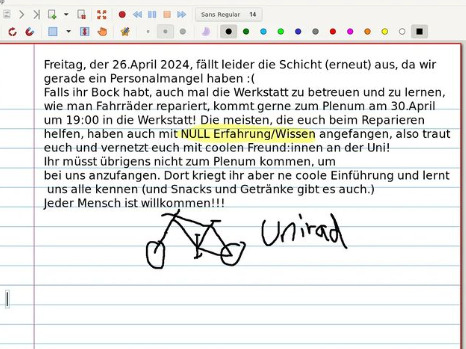 Sans Regular 14
Freitag, der 26.April 2024, fällt leider die Schicht (erneut) aus, da wir
gerade ein Personalmangel haben :(
Falls ihr Bock habt, auch mal die Werkstatt zu betreuen und zu lernen,
wie man Fahrräder repariert, kommt gerne zum Plenum am 30.April
um 19:00 in die Werkstatt! Die meisten, die euch beim Reparieren
helfen, haben auch mit NULL Erfahrung/Wissen angefangen, also traut
euch und vernetzt euch mit coolen Freund:innen an der Uni!
Ihr müsst übrigens nicht zum Plenum kommen, um
bei uns anzufangen. Dort kriegt ihr aber ne coole Einführung und lernt
uns alle kennen (und Snacks und Getränke gibt es auch.)
Jeder Mensch ist willkommen!!!
Unirad